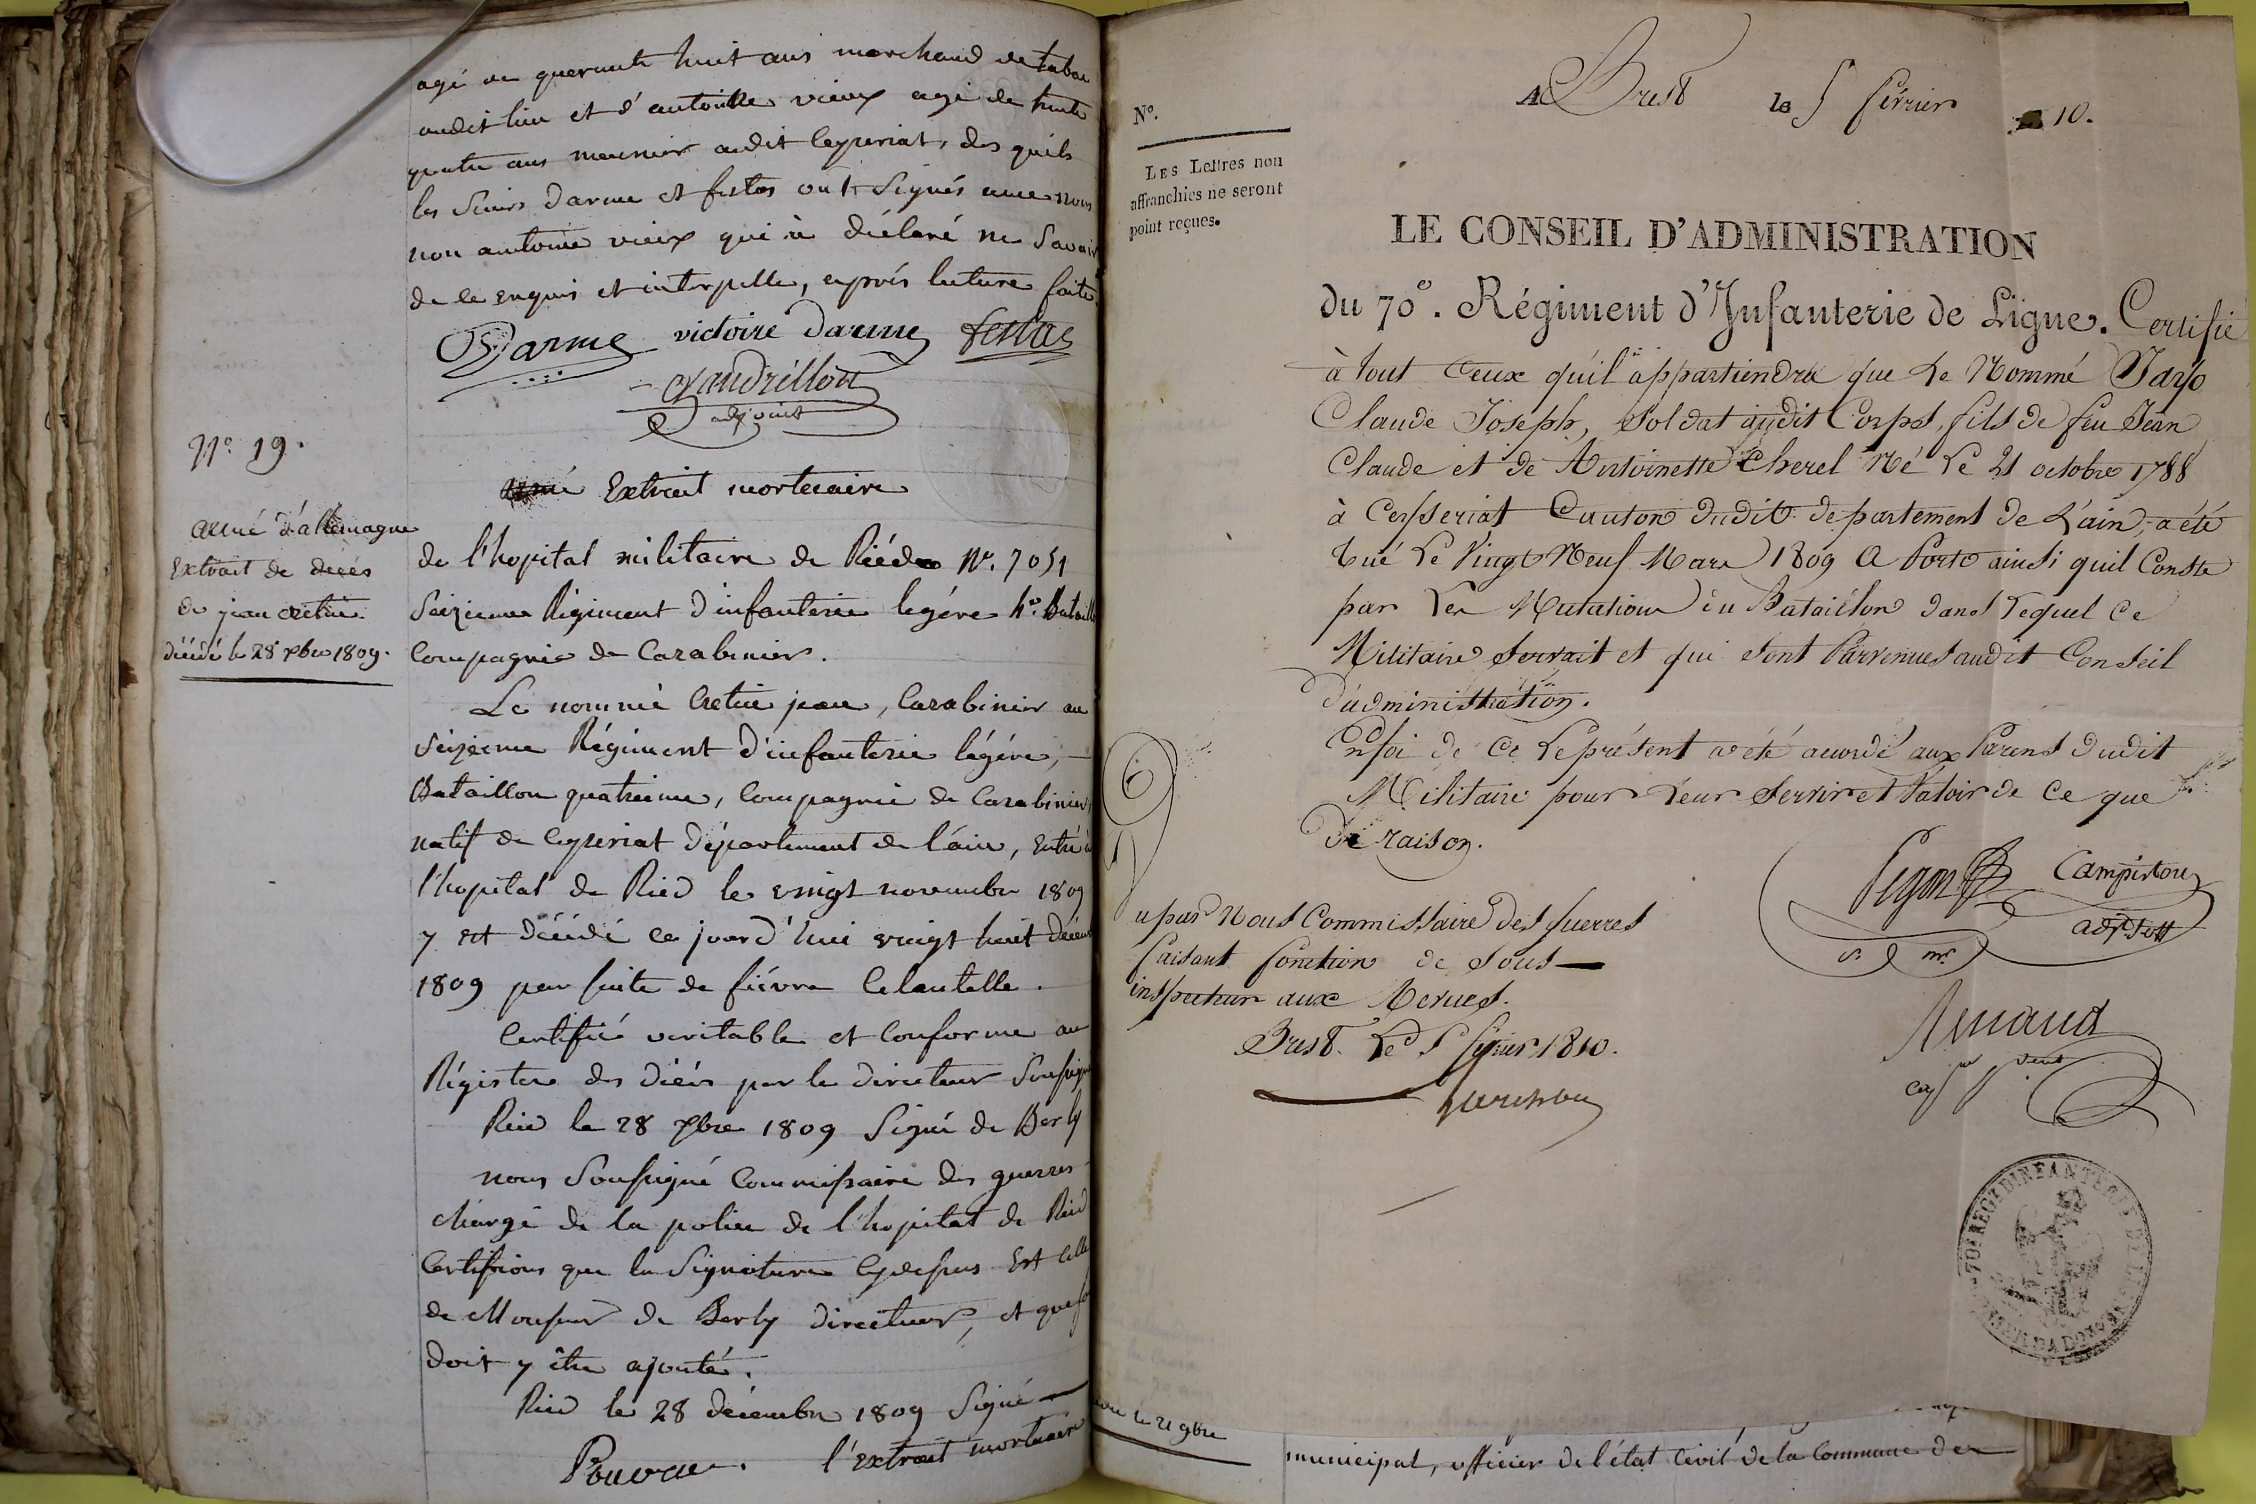 agé de quarante huit ans marchand de tabac
audit lieu et d'antoine vieux agé de trente
quatre ans meunier audit Ceyzeriat, des quels
les Sieurs Darme et festas ont Signés avec nous
non antoine vieux qui à déclaré ne Savoir
de ce enquis et interpellé, après lecture faite
Darme victoire darme festas
Gaudrillon
adjoint
Nº 19.
Extrait mortuaire
armé d'allemagne
Extrait de décès
de jean cretin
décédé le 28 xbre 1809.
de l'hopital militaire de Riéd Nº. 7051
Seizieme Régiment d'infanterie legére 4e. Bataillon
Compagnie de Carabinier.
Le nommé Cretin jean, Carabinier au
Seizieme Régiment d'infanterie légére,
Bataillon quatrieme, Compagnie de Carabinier,
natif de Ceyzeriat Département de l'ain, Entré à
l'hopital de Ried le vingt novembre 1809
y est décédé ce jourd'hui vingt huit décembre
1809 par suite de fiévre
Certifié veritable et Conforme au
Régistre des décés par le directeur Soussigné
Ried le 28 xbre 1809 Signé de Berly
nous Soussigné Commissaire des guerres
chargé de la police de l'hopital de Ried
Certifions que la Signature Cydessus Est celle
de Monsieur de Berly directeur, et que foi
doit y être ajouté.
Ried le 28 décembre 1809 Signé
l'extrait mortuaire
A Brest le 5 février 10.
Nº.
LES Lettres non
affranchies ne seront
point reçues.
LE CONSEIL D'ADMINISTRATION
du 70e. Régiment d'Infanterie de Ligne. Certifie
à tout Ceux qu'il appartiendra que Le Nommé
Claude Joseph, Soldat audit Corps, fils de feu Jean
Claude et de Antoinette Cherel Né Le 21 octobre 1788
à Ceyseriat Canton dudit departement de L'ain, a été
tué Le Vingt Neuf Mars 1809 a Porto ainsi quil Conste
par Les Mutations du Bataillon dans Lequel Ce
Militaire Servait et qui sont Parvenues audit Conseil
d'administration.
Enfoi de Ce Le présent a été accordé aux Parens dudit
Militaire pour Leur Servir et Valoir de Ce que
De raison.
Campistou
S. mr
adjt sott
u par Nous Commissaire des Guerres
faisant fonction de Sous
inspecteur aux Revues.
Brest. Le 5 février 1810.
Renaud
70e REGt D'INFANTERIE DE LIGNE
le 21 9bre
municipal, officier de l'état Civil de la Commune de